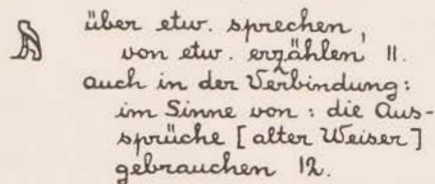 𓅓 über etw. sprechen,
von etw. erzählen 11.
auch in der Verbindung:
im Sinne von: die Aus-
sprüche [alter Weiser]
gebrauchen 12.